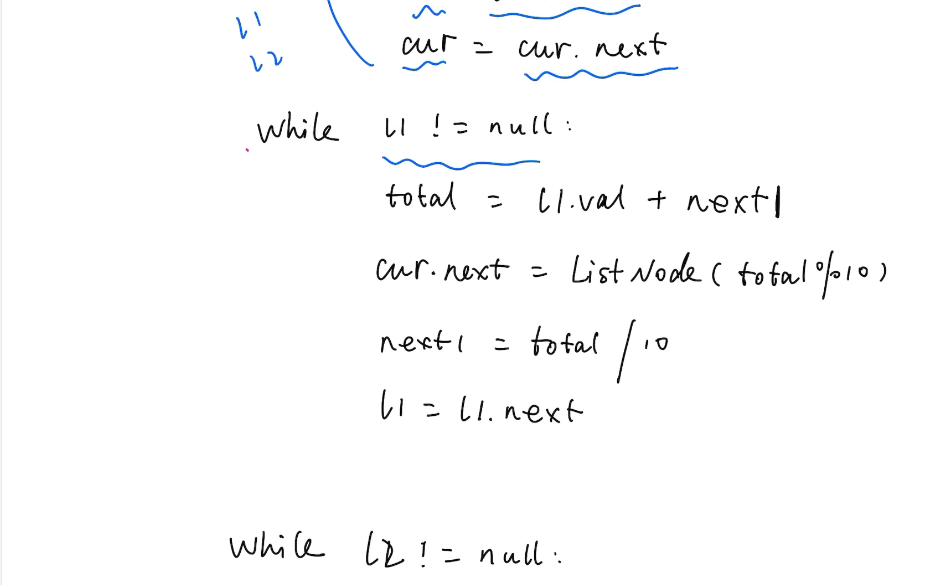 l1
l2
cur = cur.next
while l1 != null:
total = l1.val + next1
cur.next = ListNode(total%10)
next1 = total/10
l1 = l1.next
while l2 != null: